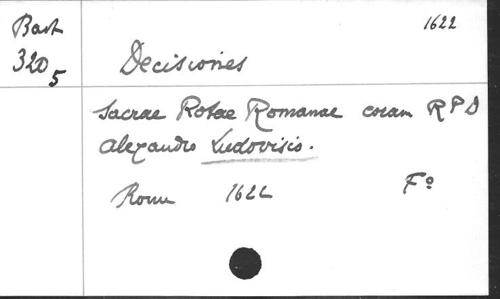 Bast 1622
320 5
Decisiones
Sacrae Rotae Romanae coram R P D
Alexandro Ludovisio.
Rome 1622 Fº